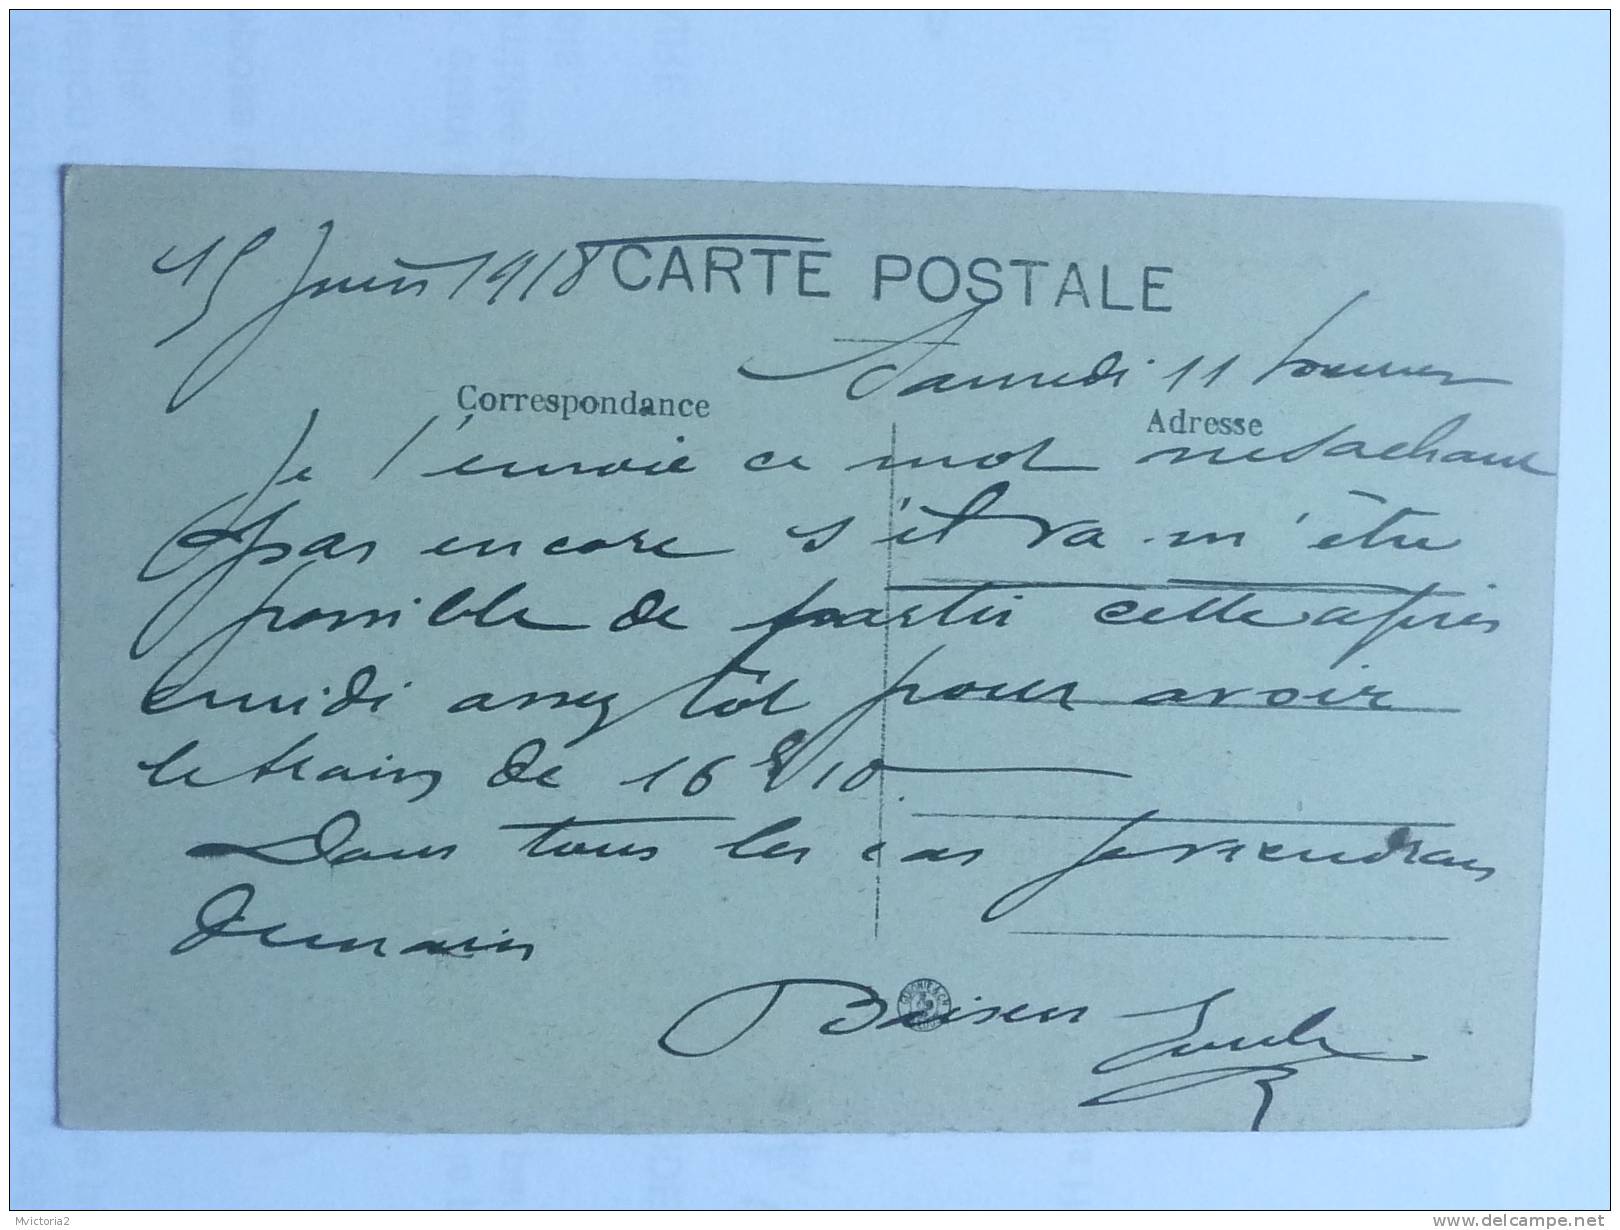 15 Juin 1918
CARTE POSTALE
Samedi 11
Correspondance
Adresse
Je t'envoie ce mot ne sachant
pas encore s'il va m'être
possible de partir cette après
midi assez tôt pour avoir
le train de 16 h 10.
Dans tous les cas je viendrais
demain
Baisers
Mvictoria2
delcampe.net